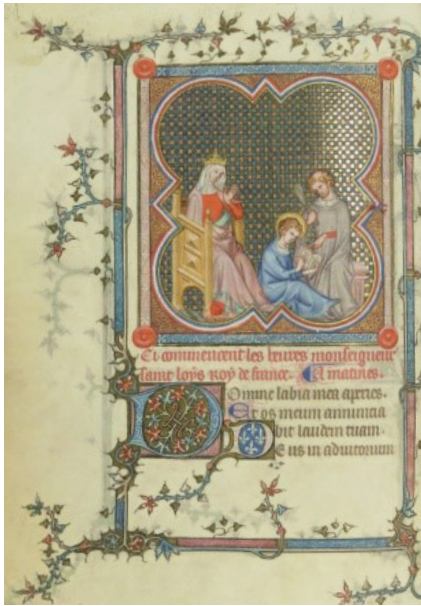 Ci commencent les heures monseigneur
saint loys roy de france. A matines.
Domine labia mea aperies.
Et os meum annuncia
bit laudem tuam.
Deus in adiutorium